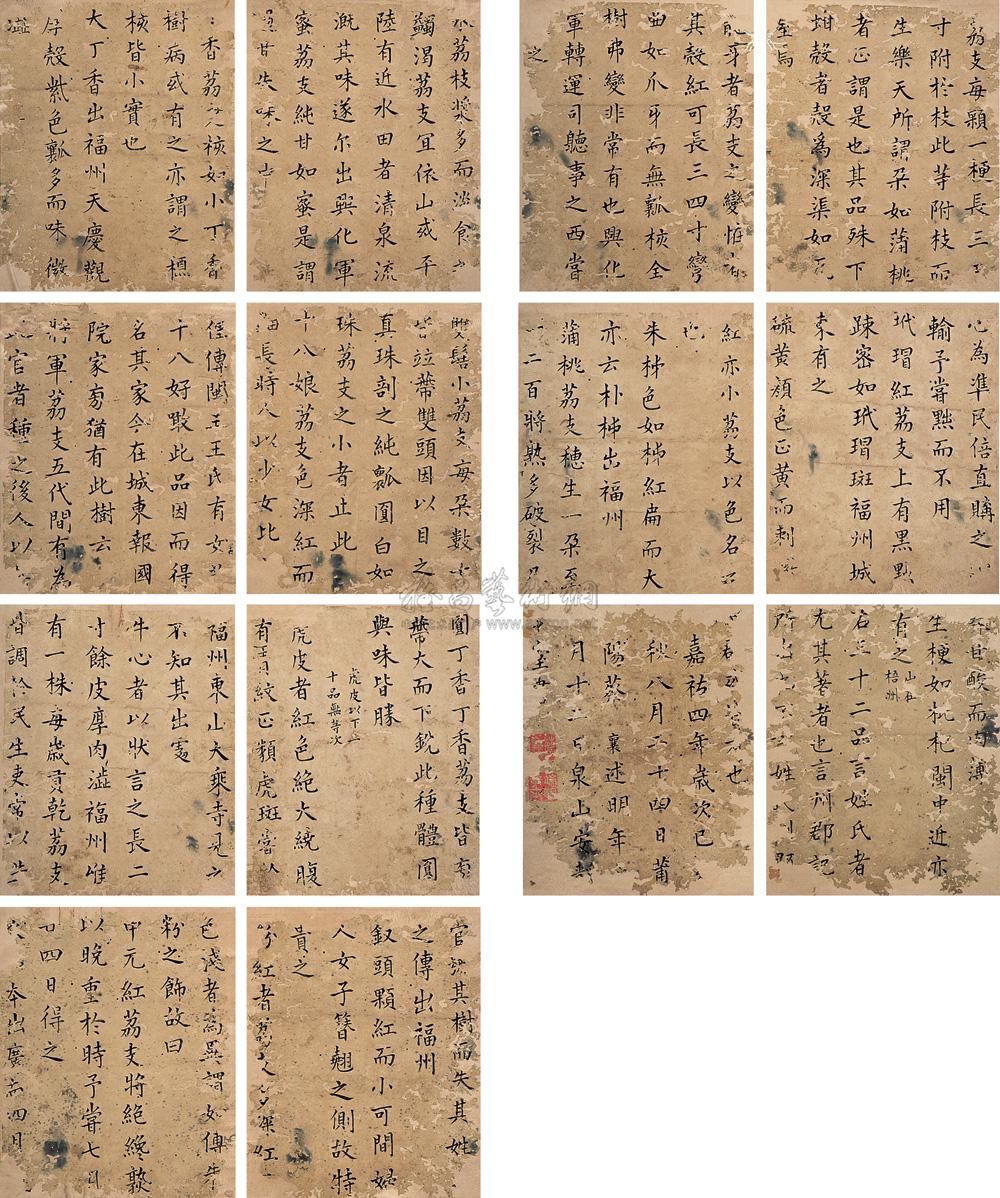 荔支每穎一梗長三五
寸附於枝此等附枝而
生樂天所謂朶如蒲桃
者正謂是也其品殊下
蚶殼者殼爲深渠如瓦
屋焉
龍牙者荔支之變恠者
其殼紅可長三四寸彎
曲如爪牙而無瓤核全
樹弗變非常有也興化
軍轉運司聽事之西嘗
之
水荔枝漿多而淡食之
蠲渴荔支宜依山或平
陸有近水田者清泉流
溉其味遂尔出興化軍
蜜荔支純甘如蜜是謂
過甘失味之中
香荔支核如小丁香
樹病或有之亦謂之樵
核皆小實也
大丁香出福州天慶觀
厚殼紫色瓤多而味微
澁
心爲準民倍直購之以
輸予嘗黜而不用
玳瑁紅荔支上有黑點
踈密如玳瑁斑福州城
東有之
硫黃顏色正黃而刺微
紅亦小荔支以色名之
也
朱柹色如柹紅扁而大
亦云朴柹出福州
蒲桃荔支穗生一朶至
一二百將熟多破裂凡
雙髻小荔支每朶數十
皆竝蔕雙頭因以目之
真珠剖之純瓤圓白如
珠荔支之小者止此
十八娘荔支色深紅而
細長時人以少女比
俚傳閩王王氏有女第
十八好噉此品因而得
名其家今在城東報國
院冢旁猶有此樹云
將軍荔支五代間有為
此官者種之後人以
梗如枇杷閩中近亦
有之 山在梧州
右三十二品言姓氏者
尤其著者也言州郡記
所出
也
嘉祐四年歲次己
秋八月二十四日莆
陽蔡襄述明年
月十二日泉山安
圓丁香丁香荔支皆旁
蔕大而下銳此種體圓
與味皆勝
虎皮以下二十品無等次
虎皮者紅色絕大繞腹
有青紋正類虎斑嘗於
福州東山大乘寺見之
不知其出處
牛心者以狀言之長二
寸餘皮厚肉澁福州唯
有一株每歲貢乾荔支
皆調於民主吏常以此
官號其樹而失其姓
之傳出福州
釵頭顆紅而小可間婦
人女子簪翹之側故特
貴之
粉紅者荔支多深紅
色淺者為異謂如傅朱
粉之飾故曰
中元紅荔支將絕纔熟
以晚重於時予嘗七月
廿四日得之
本出廣南四月